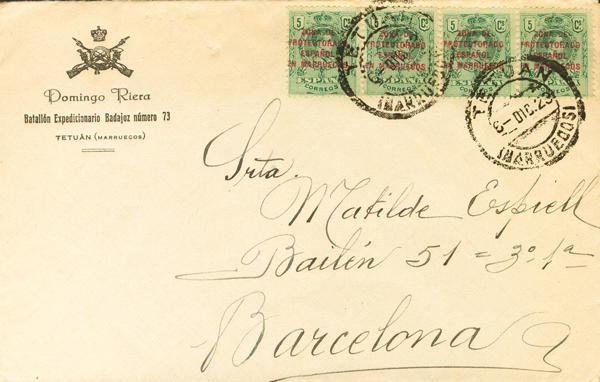 Domingo Riera
Batallón Expedicionario Badajoz número 73
TETUÁN (MARRUECOS)
5 Cs 5 Cs 5 Cs 5 Cs
ZONA DE ZONA DE ZONA DE ZONA DE
PROTECTORADO PROTECTORADO PROTECTORADO PROTECTORADO
ESPAÑOL ESPAÑOL ESPAÑOL ESPAÑOL
EN MARRUECOS EN MARRUECOS EN MARRUECOS EN MARRUECOS
CORREOS CORREOS CORREOS CORREOS
TETUAN
(MARRUECOS)
TETUAN
DIC. 23
(MARRUECOS)
Srta.
Matilde Espiell
Bailén 51 = 3º. 1ª
Barcelona